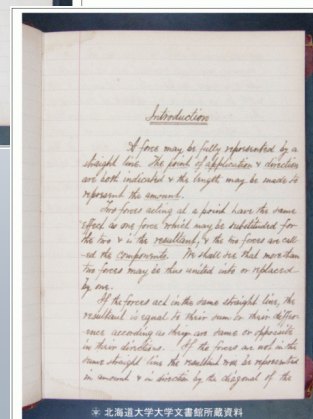 Introduction
A force may be fully represented by a
straight line. The point of application & direction
are both indicated & the length may be made to
represent the amount.
Two forces acting at a point have the same
effect as one force which may be substituted for
the two & is the resultant, & the two forces are call-
ed the components. We shall see that more than
two forces may be thus united into or replaced
by one.
If the forces act in the same straight line, the
resultant is equal to their sum or their differ-
ence according as they are same or opposite
in their directions. If the forces are not in the
same straight line the resultant may be represented
in amount & in direction by the diagonal of the
＊北海道大学大学文書館所蔵資料